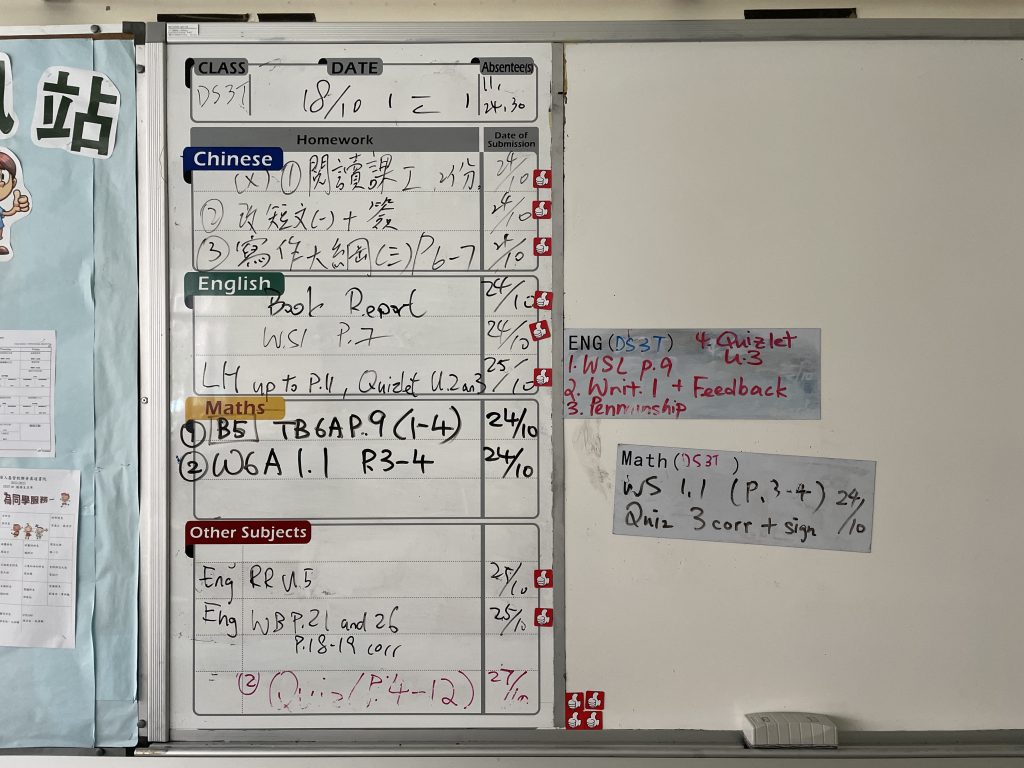 站
CLASS DATE Absentee(s)
DS3T 18/10 ( 二 ) 11,
24,30
Homework Date of Submission
Chinese
(x) ① 閱讀課工 2份. 24/10
② 改短文(一) + 簽 24/10
③ 寫作大綱(三) P6-7 24/10
English
Book Report 24/10
WS1 P.7 24/10
LH up to P.11, Quizlet U.2 an3 25/10
Maths
① B5 TB6A P.9 (1-4) 24/10
② W6A 1.1 P.3-4 24/10
Other Subjects
Eng RR U.5 25/10
Eng WB P.21 and 26 25/10
P.18-19 corr
(2) (Quiz (P.4-12) 27/10
ENG (DS3T) 4. Quizlet
U.3
1. WSL P.9
2. Writ. 1 + Feedback
3. Penmanship
Math (DS3T )
WS 1.1 (P.3-4) 24/10
Quiz 3 corr + sign
為同學服務